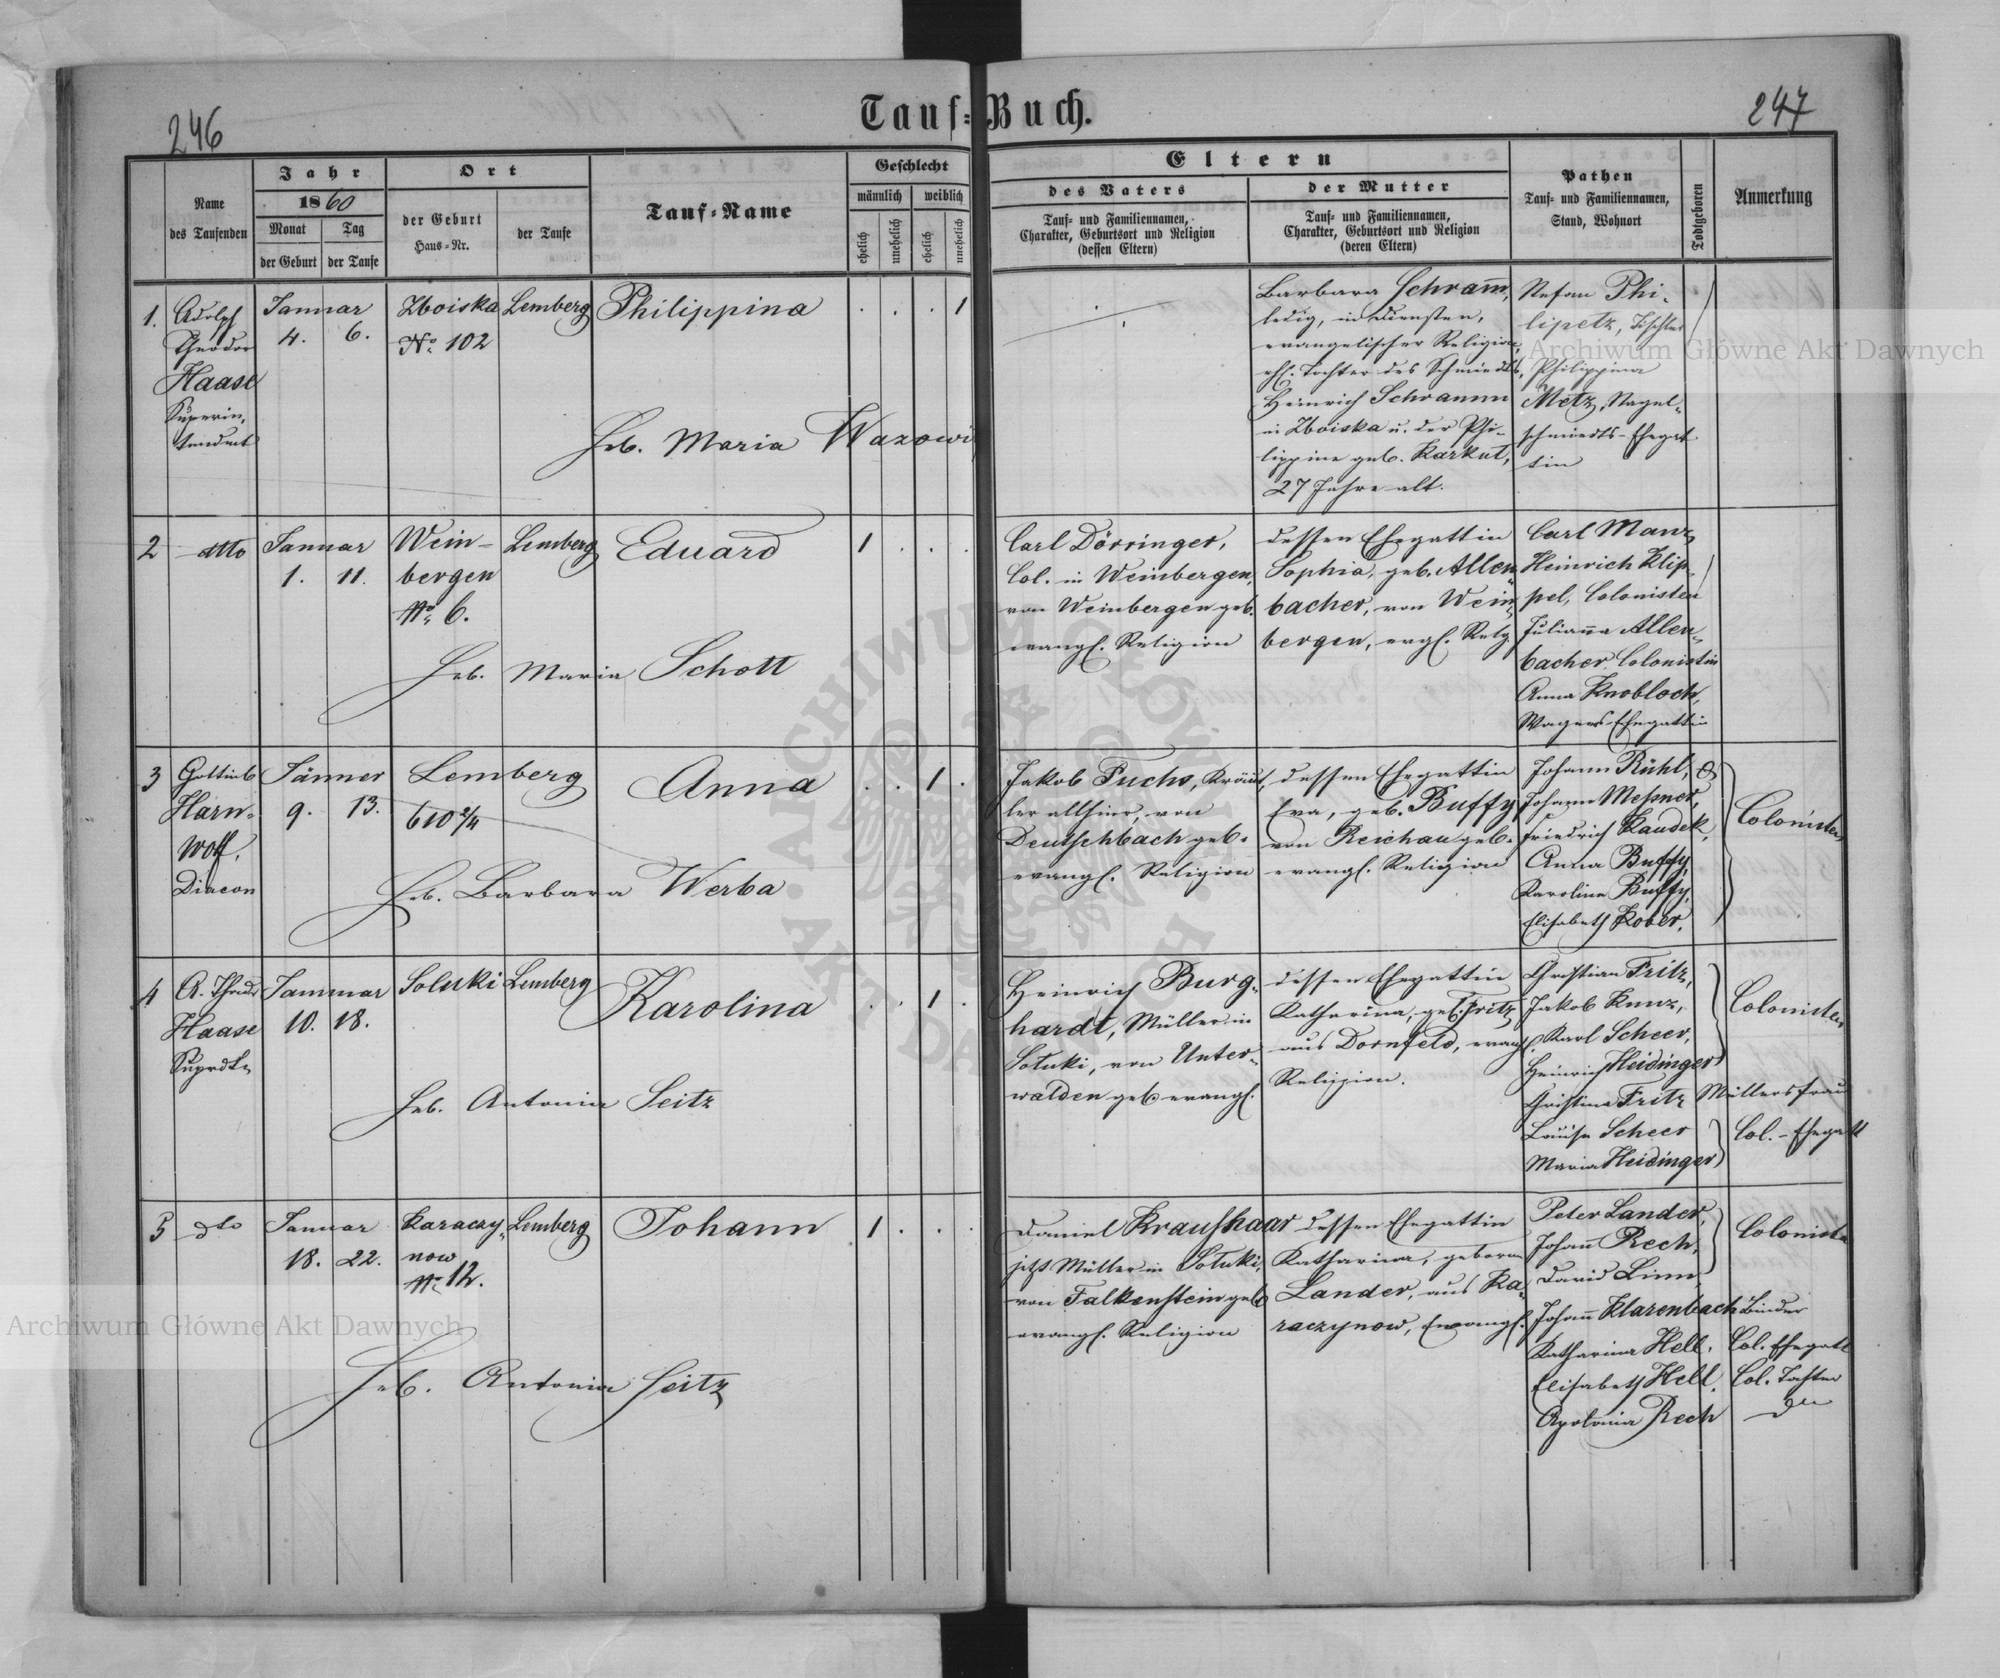 246
Tauf-Buch.
247
Name
des Taufenden
Jahr
1860
Monat
Tag
der Geburt
der Taufe
Ort
der Geburt
Haus-Nr.
der Taufe
Tauf-Name
Geschlecht
männlich
weiblich
ehelich
unehelich
ehelich
unehelich
Eltern
des Vaters
Tauf- und Familiennamen,
Charakter, Geburtsort und Religion
(dessen Eltern)
der Mutter
Tauf- und Familiennamen,
Charakter, Geburtsort und Religion
(deren Eltern)
Pathen
Tauf- und Familiennamen,
Stand, Wohnort
Todtgeboren
Anmerkung
1.
Adolph
Theodor
Haase
Superin-
tendent
Januar
4. 6.
Zboiska
No. 102
Lemberg
Philippina
. . . 1
Heb. Maria
Barbara Schram̄,
ledig, in Diensten,
evangelischer Religion,
ehl. Tochter des Schmiedts,
Heinrich Schramm
in Zboiska u. der Phi-
lippine geb. Karkut,
27 Jahre alt.
Stefan Phi-
lipetz, Tischler
Philippina
Metz, Nagel-
schmiedts-Ehegat
tin
2
dtto
Januar
1. 11.
Wein-
bergen
No. 6.
Lemberg
Eduard
1 . . .
Heb. Maria Schott
Carl Dörringer,
Col. in Weinbergen,
von Weinbergen geb.
evangl. Religion
dessen Ehegattin
Sophia, geb. Allen-
bacher, von Wein-
bergen, evgl. Relg.
Carl Manz
Heinrich Klip-
pel, Colonisten
Julian̄a Allen-
bacher Colonistin
Anna Knobloch,
Wagners-Ehegattin
3
Gottlieb
Harn-
wolf,
Diacon
Jänner
9. 13.
Lemberg
610 2/4
Anna
. . 1 .
Heb. Barbara Werba
Jakob Fuchs, Kräut-
ler allhier, von
Deutschbach geb.
evangl. Religion
dessen Ehegattin
Eva, geb. Buffy
von Reichau geb.
evangl. Religion
Johann Rühl,
Johann Meßner,
Friedrich Kaudek,
Anna Buffy,
Karoline Buffy,
Elisabeth Kober.
Colonisten
4
A. Theodor
Haase
Suprdt.
Januar
10. 18.
Soluki
Lemberg
Karolina
. . 1 .
Heb. Antonia Seitz
Heinrich Burg-
hardt, Müller in
Soluki, von Unter-
walden geb evangl.
dessen Ehegattin
Katharina, geb. Fritz
aus Dornfeld, evangl.
Religion.
Christian Fritz,
Jakob Kunz,
Karl Scheer,
Heinrich Heidinger
Christina Fritz Müllersfrau
Louise Scheer
Maria Heidinger
Colonisten
Col.-Ehegatt
5
dto
Januar
18. 22.
Karaczy-
now
No. 12.
Lemberg
Johann
1 . . .
Heb. Antonia Seitz
Daniel Kraushaar
jetzt Müller in Soluki,
von Falkenstein geb
evangl. Religion
dessen Ehegattin
Katharina, geborne
Lander, aus Ka-
raczynow, Evangl.
Peter Lander,
Johan̄ Rech,
David Linn,
Johan̄ Klarenbach Binder
Katharina Hell, Col. Ehegatt
Elisabeth Hell, Col. Tochter
Apolonia Rech dtto
Coloniste
Archiwum Główne Akt Dawnych
Archiwum Główne Akt Dawnych
ARCHIWUM GŁÓWNE AKT DAWNYCH